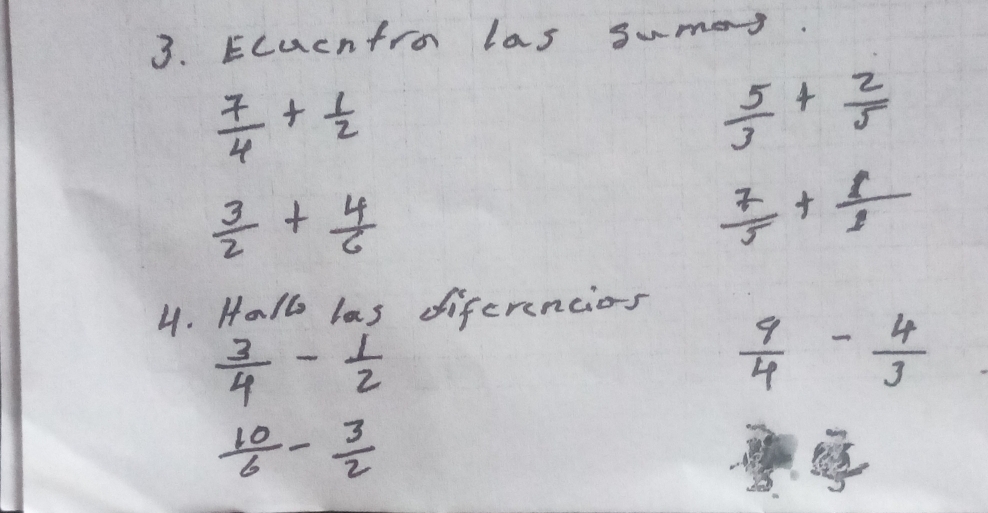 3. Ecuentra las sumas.
7/4 + 1/2    5/3 + 2/5
3/2 + 4/6    7/5 + 1/1
4. Halla las diferencias
3/4 - 1/2    9/4 - 4/3
10/6 - 3/2